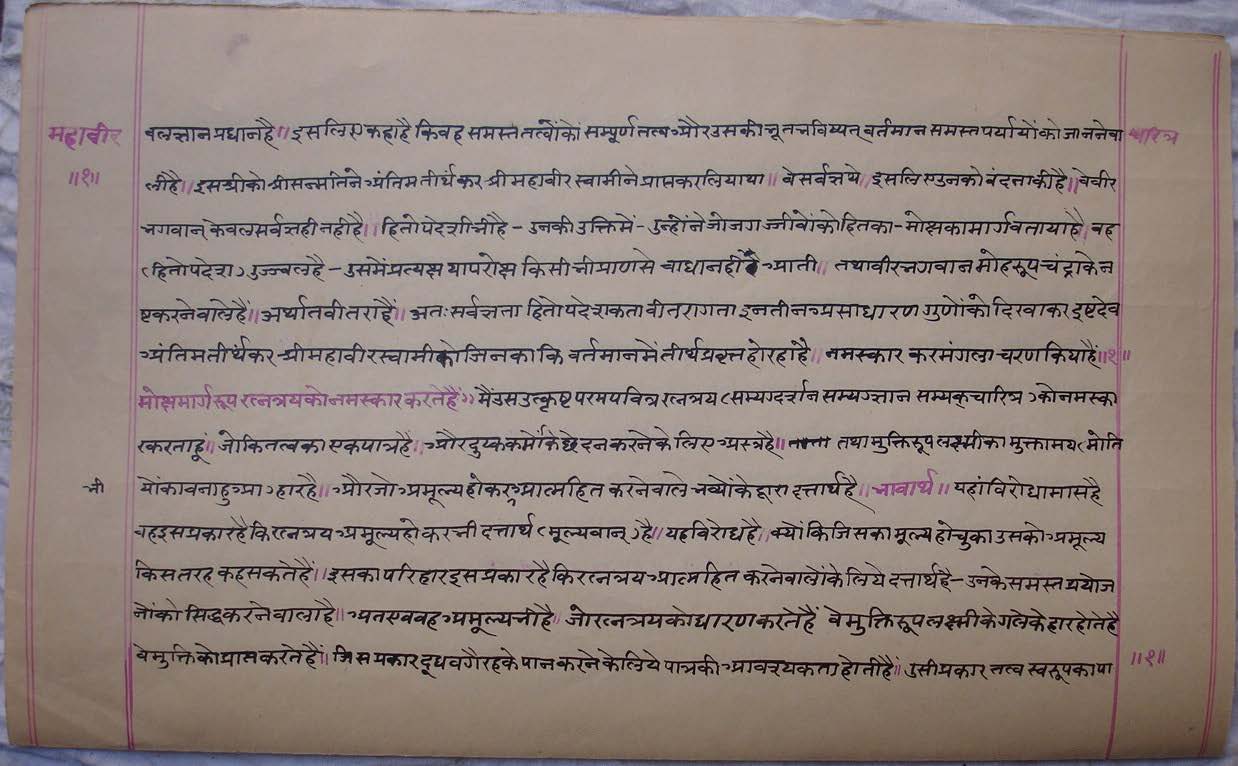 महावीर
॥१॥
चरित्र
वलज्ञान प्रधान है॥ इसलिए कहा है कि वह समस्त तत्वोंको सम्पूर्ण तत्व और उसकी भूत भविष्यत् वर्तमान समस्त पर्यायों को जाननेवा
ली है॥ इस श्री को श्री सन्मतिने अंतिम तीर्थकर श्री महावीर स्वामीने प्राप्त कर लिया था॥ वे सर्वज्ञ थे॥ इसलिए उनको वंदना की है॥ वे वीर
भगवान् केवल सर्वज्ञ ही नही है॥ हितोपदेशी भी है - उनकी उक्ति में - उन्होंने जो जगज्जीवोंको हितका - मोक्षका मार्ग बताया है॥ वह
(हितोपदेश) उज्ज्वल है - उसमें प्रत्यक्ष या परोक्ष किसी भी प्राण से बाधा नहीं है आती॥ तथा वीर भगवान मोहरूप चंद्राके न
ष्ट करने वाले हैं॥ अर्थात वीतरा हैं॥ अतः सर्वज्ञत्ता हितोपदेशकता वीतरागता इन तीन असाधारण गुणोंको दिखाकर इष्टदेव
अंतिम तीर्थकर श्री महावीर स्वामी को जिनका कि वर्तमान में तीर्थ प्रवृत्त हो रहा है॥ नमस्कार कर मंगलाचरण किया हैं॥१॥
मोक्षमार्ग रूप रत्नत्रय को नमस्कार करते हैं॥ मैं उस उत्कृष्ट परम पवित्र रत्नत्रय (सम्यग्दर्शन सम्यग्ज्ञान सम्यक्चारित्र) को नमस्का
र करता हूं॥ जो कि तत्व का एक पात्र है॥ और दुष्क कर्मों के छेदन करने के लिए अस्त्र है॥ तथा मुक्तिरूप लक्ष्मी का मुक्तामय (मोति
भी
योंका बना हुआ) हार है॥ और जो अमूल्य होकर आत्महित करने वाले भव्यों के द्वारा दत्तार्थ है॥ भावार्थ॥ यहां विरोधाभास है
वह इस प्रकार है कि रत्नत्रय अमूल्य होकर भी दत्तार्थ (मूल्यवान्) है॥ यह विरोध है॥ क्यों कि जिसका मूल्य हो चुका उसको अमूल्य
किस तरह कह सकते हैं॥ इसका परिहार इस प्रकार है कि रत्नत्रय आत्महित करनेवालों के लिये दत्तार्थ है - उनके समस्त प्रयोज
नोंको सिद्ध करने वाला है॥ अतएव वह अमूल्य भी है॥ जो रत्नत्रय को धारण करते हैं वे मुक्तिरूप लक्ष्मी के गले के हार होते है
वे मुक्ति को प्राप्त करते हैं॥ जिस प्रकार दूध वगैरह के पान करने के लिये पात्र की आवश्यकता होती हैं॥ उसी प्रकार तत्व स्वरूप का पा
॥१॥